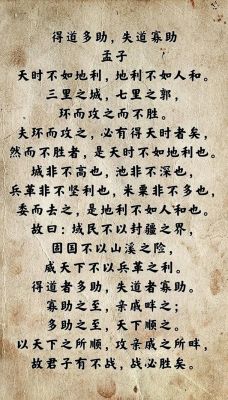 得道多助，失道寡助
孟子
天时不如地利，地利不如人和。
三里之城，七里之郭，
环而攻之而不胜。
夫环而攻之，必有得天时者矣，
然而不胜者，是天时不如地利也。
城非不高也，池非不深也，
兵革非不坚利也，米粟非不多也，
委而去之，是地利不如人和也。
故曰：域民不以封疆之界，
固国不以山溪之险，
威天下不以兵革之利。
得道者多助，失道者寡助。
寡助之至，亲戚畔之；
多助之至，天下顺之。
以天下之所顺，攻亲戚之所畔，
故君子有不战，战必胜矣。